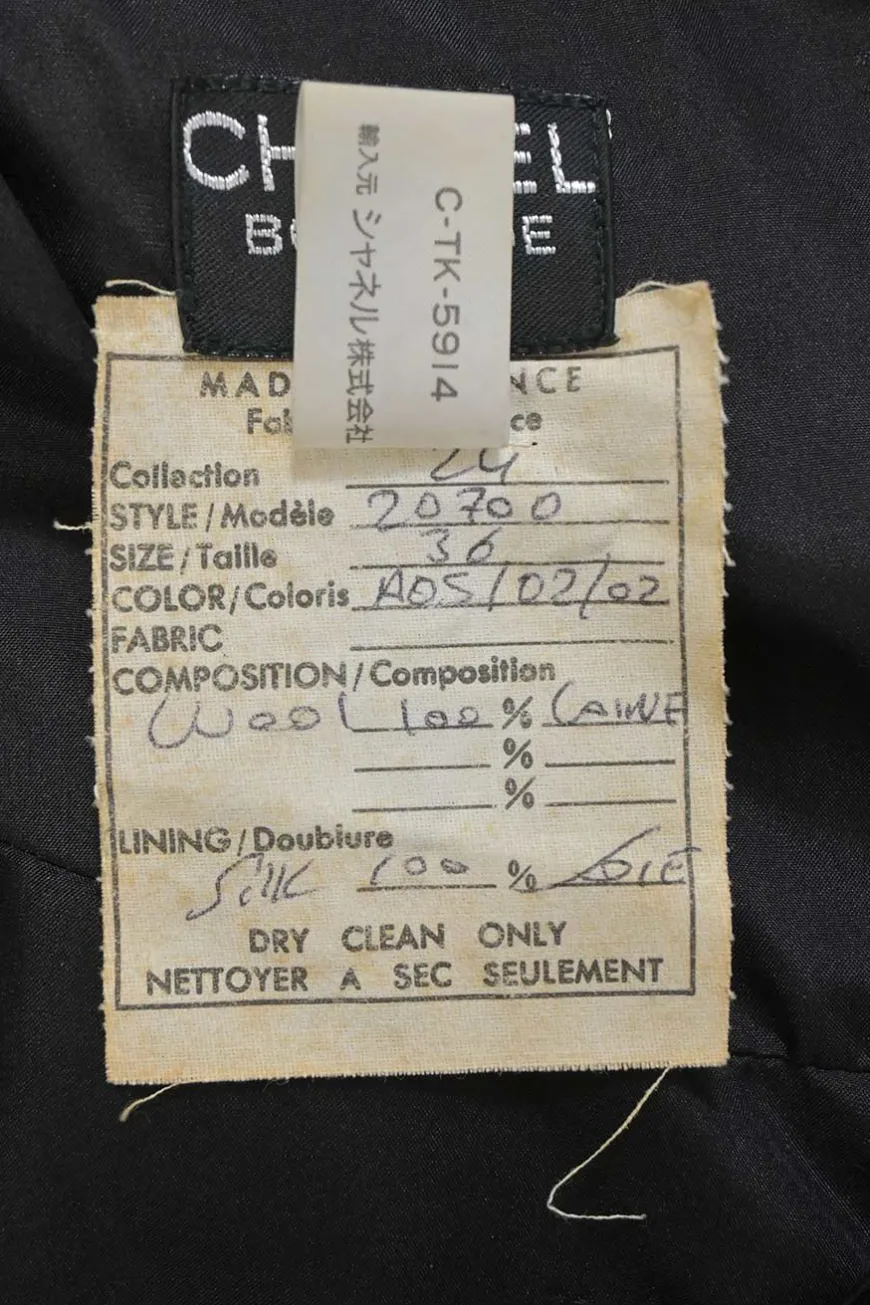 CH EL
B E
輸入元 シャネル株式会社
C-TK-5914
MAD NCE
Fa ce
Collection 24
STYLE/Modèle 20700
SIZE/Taille 36
COLOR/Coloris A05/02/02
FABRIC
COMPOSITION/Composition
WOOL 100 % LAINE
%
%
LINING/Doublure
Silk 100 % SOIE
DRY CLEAN ONLY
NETTOYER A SEC SEULEMENT